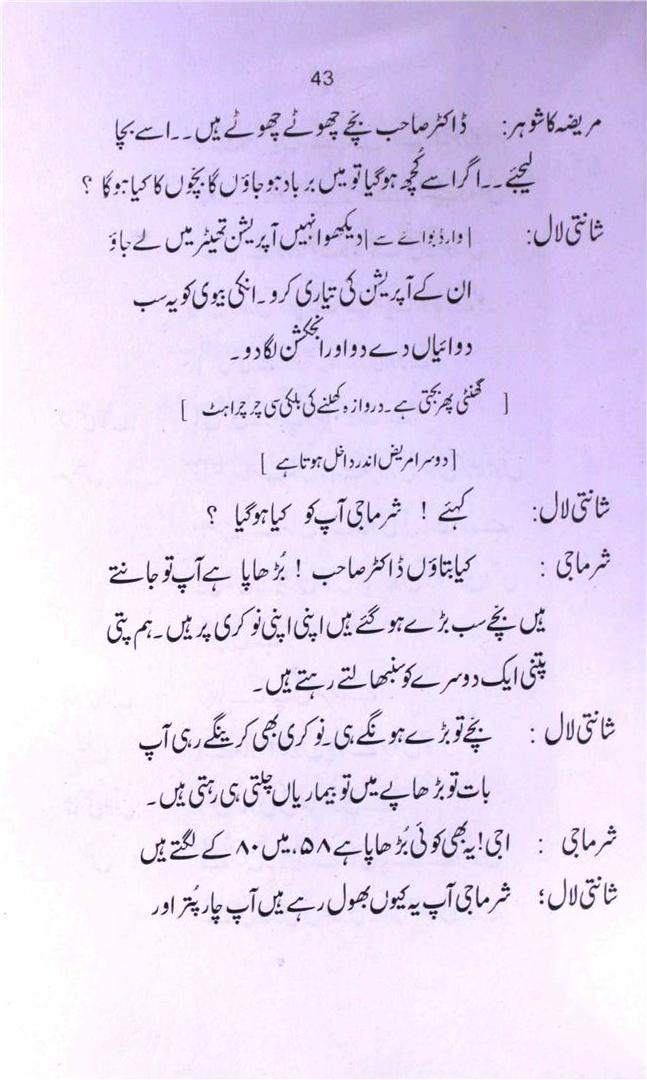 43
مریضہ کا شوہر: ڈاکٹر صاحب بچّے چھوٹے چھوٹے ہیں۔۔اسے بچا
لیجیئے۔۔اگر اسے کُچھ ہو گیا تو میں برباد ہو جاؤں گا بچّوں کا کیا ہو گا ؟
شانتی لال: [وارڈ بوائے سے] دیکھو انہیں آپریشن تھیٹر میں لے جاؤ
ان کے آپریشن کی تیاری کرو۔انکی بیوی کو یہ سب
دوائیاں دے دو اور انجکشن لگا دو۔
[ گھنٹی پھر بجتی ہے۔دروازہ کھلنے کی ہلکی سی چرچراہٹ ]
[دوسرا مریض اندر داخل ہوتا ہے ]
شانتی لال: کہئے ! شرما جی آپ کو کیا ہو گیا ؟
شرما جی : کیا بتاؤں ڈاکٹر صاحب ! بُڑھاپا ہے آپ تو جانتے
ہیں بچّے سب بڑے ہو گئے ہیں اپنی اپنی نوکری پر ہیں۔ہم پتی
پتنی ایک دوسرے کو سنبھالتے رہتے ہیں۔
شانتی لال : بچّے تو بڑے ہونگے ہی۔نوکری بھی کرینگے رہی آپ
بات تو بڑھاپے میں تو بیماریاں چلتی ہی رہتی ہیں۔
شرما جی : اجی! یہ بھی کوئی بُڑھاپا ہے ۵۸، میں ۸۰ کے لگتے ہیں
شانتی لال؛ شرما جی آپ یہ کیوں بھول رہے ہیں آپ چار پُتر اور